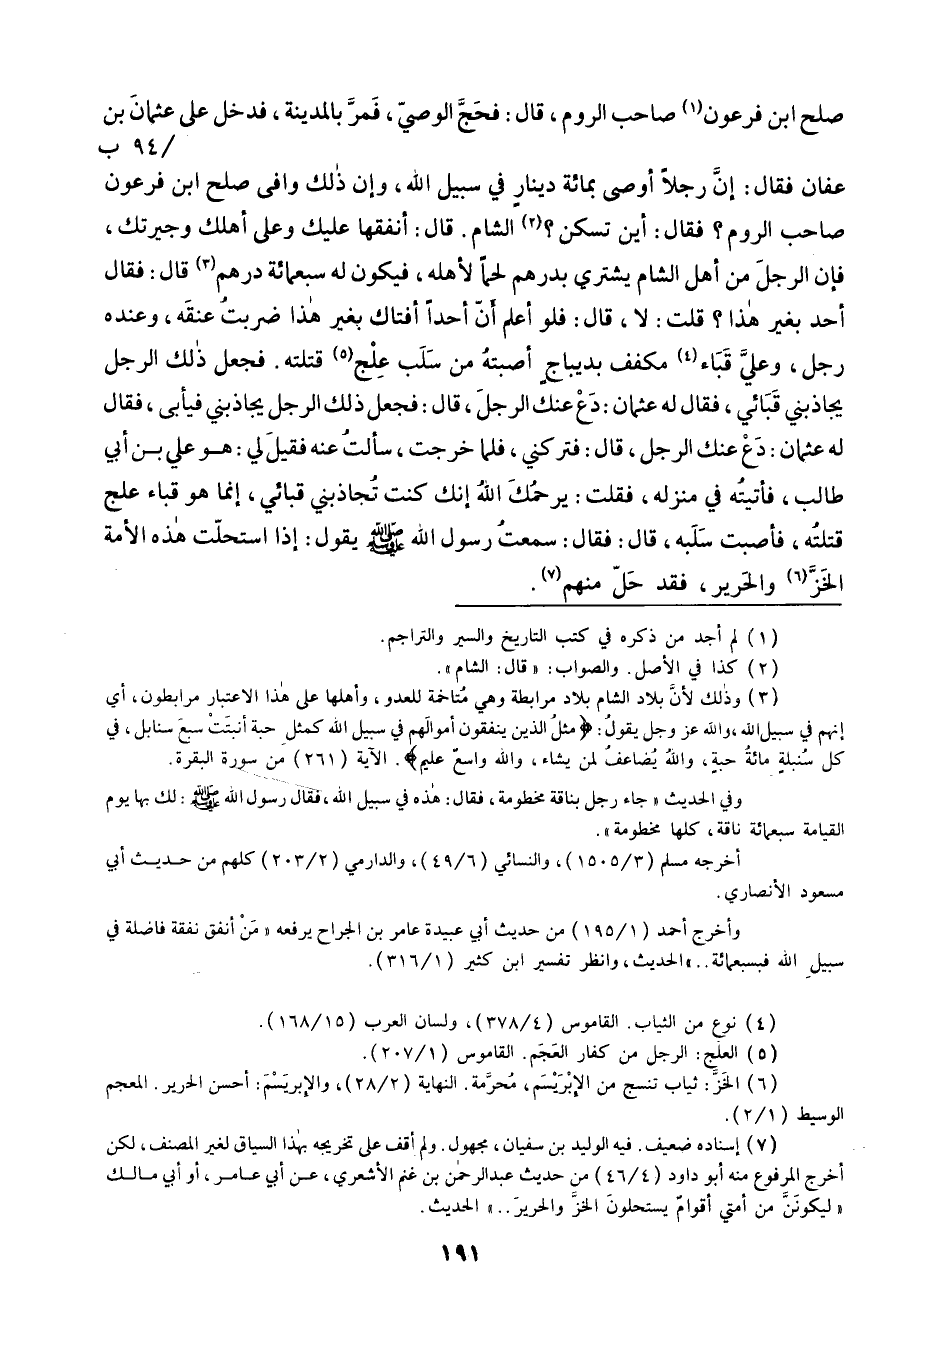 صلح ابن فرعون(١) صاحب الروم، قال: فحَجَّ الوصيّ، فَمرَّ بالمدينة، فدخل على عثمانَ بن
/٩٤ ب
عفان فقال: إنَّ رجلاً أوصى بمائة دينارٍ في سبيل الله، وإن ذٰلك وافى صلح ابن فرعون
صاحب الروم؟ فقال: أين تسكن؟(٢) الشام. قال: أنفقها عليك وعلى أهلك وجيرتك،
فإن الرجلَ من أهل الشام يشتري بدرهم لحماً لأهله، فيكون له سبعمائة درهم(٣) قال: فقال
أحد بغير هٰذا؟ قلت: لا، قال: فلو أعلم أنّ أحداً أفتاك بغير هٰذا ضربتُ عنقَه، وعنده
رجل، وعليَّ قَبَاء(٤) مكفف بديباجٍ أصبتهُ من سَلَب عِلْج(٥) قتلته. فجعل ذٰلك الرجل
يجاذبني قَبَائي، فقال له عثمان: دَعْ عنك الرجلَ، قال: فجعل ذلك الرجل يجاذبني فيأبى، فقال
له عثمان: دَعْ عنك الرجل، قال: فتركني، فلما خرجت، سألتُ عنه فقيلَ لي: هـو علي بـن أبي
طالب، فأتيتُه في منزله، فقلت: يرحمُكَ اللهُ إنك كنت تُجاذبني قبائي، إنما هو قباء علج
قتلتُه، فأصبت سلَبه، قال: فقال: سمعتُ رسول الله ﷺ يقول: إذا استحلّت هٰذه الأمة
الخَزَّ(٦) والحَرير، فقد حَلّ منهم(٧).
(١) لم أجد من ذكره في كتب التاريخ والسير والتراجم.
(٢) كذا في الأصل. والصواب: «قال: الشام».
(٣) وذٰلك لأنَّ بلاد الشام بلاد مرابطة وهي مُتاخمة للعدو، وأهلها على هٰذا الاعتبار مرابطون، أي
إنهم في سبيل الله، والله عز وجل يقولُ: ﴿مثلُ الذين ينفقون أموالَهم في سبيل الله كمثل حبة أنبتَتْ سبعَ سنابل، في
كل سُنبلةٍ مائةُ حبةٍ، واللهُ يُضاعفُ لمن يشاء، والله واسعٌ عليم﴾. الآية (٢٦١) من سورة البقرة.
وفي الحديث «جاء رجل بناقة مخطومة، فقال: هٰذه في سبيل الله، فقال رسول الله ﷺ: لك بها يوم
القيامة سبعمائة ناقة، كلها مخطومة».
أخرجه مسلم (٣/١٥٠٥)، والنسائي (٦/٤٩)، والدارمي (٢/٢٠٣) كلهم من حـديـث أبي
مسعود الأنصاري.
وأخرج أحمد (١/١٩٥) من حديث أبي عبيدة عامر بن الجراح يرفعه «مَنْ أنفق نفقة فاضلة في
سبيل الله فبسبعمائة..» الحديث، وانظر تفسير ابن كثير (١/٣١٦).
(٤) نوع من الثياب. القاموس (٤/٣٧٨)، ولسان العرب (١٥/١٦٨).
(٥) العلج: الرجل من كفار العَجَم. القاموس (١/٢٠٧).
(٦) الخَزُّ: ثياب تنسج من الإبْرَيْسَم، مُحرَّمة. النهاية (٢/٢٨)، والإبريَسْمَ: أحسن الحرير. المعجم
الوسيط (١/٢).
(٧) إسناده ضعيف. فيه الوليد بن سفيان، مجهول. ولم أقف على تخريجه بهٰذا السياق لغير المصنف، لكن
أخرج المرفوع منه أبو داود (٤/٤٦) من حديث عبدالرحمٰن بن غنم الأشعري، عـن أبي عـامـر، أو أبي مـالـك
«ليكونَنَّ من أمتي أقوامٌ يستحلونَ الخزَّ والحريرَ..» الحديث.
١٩١